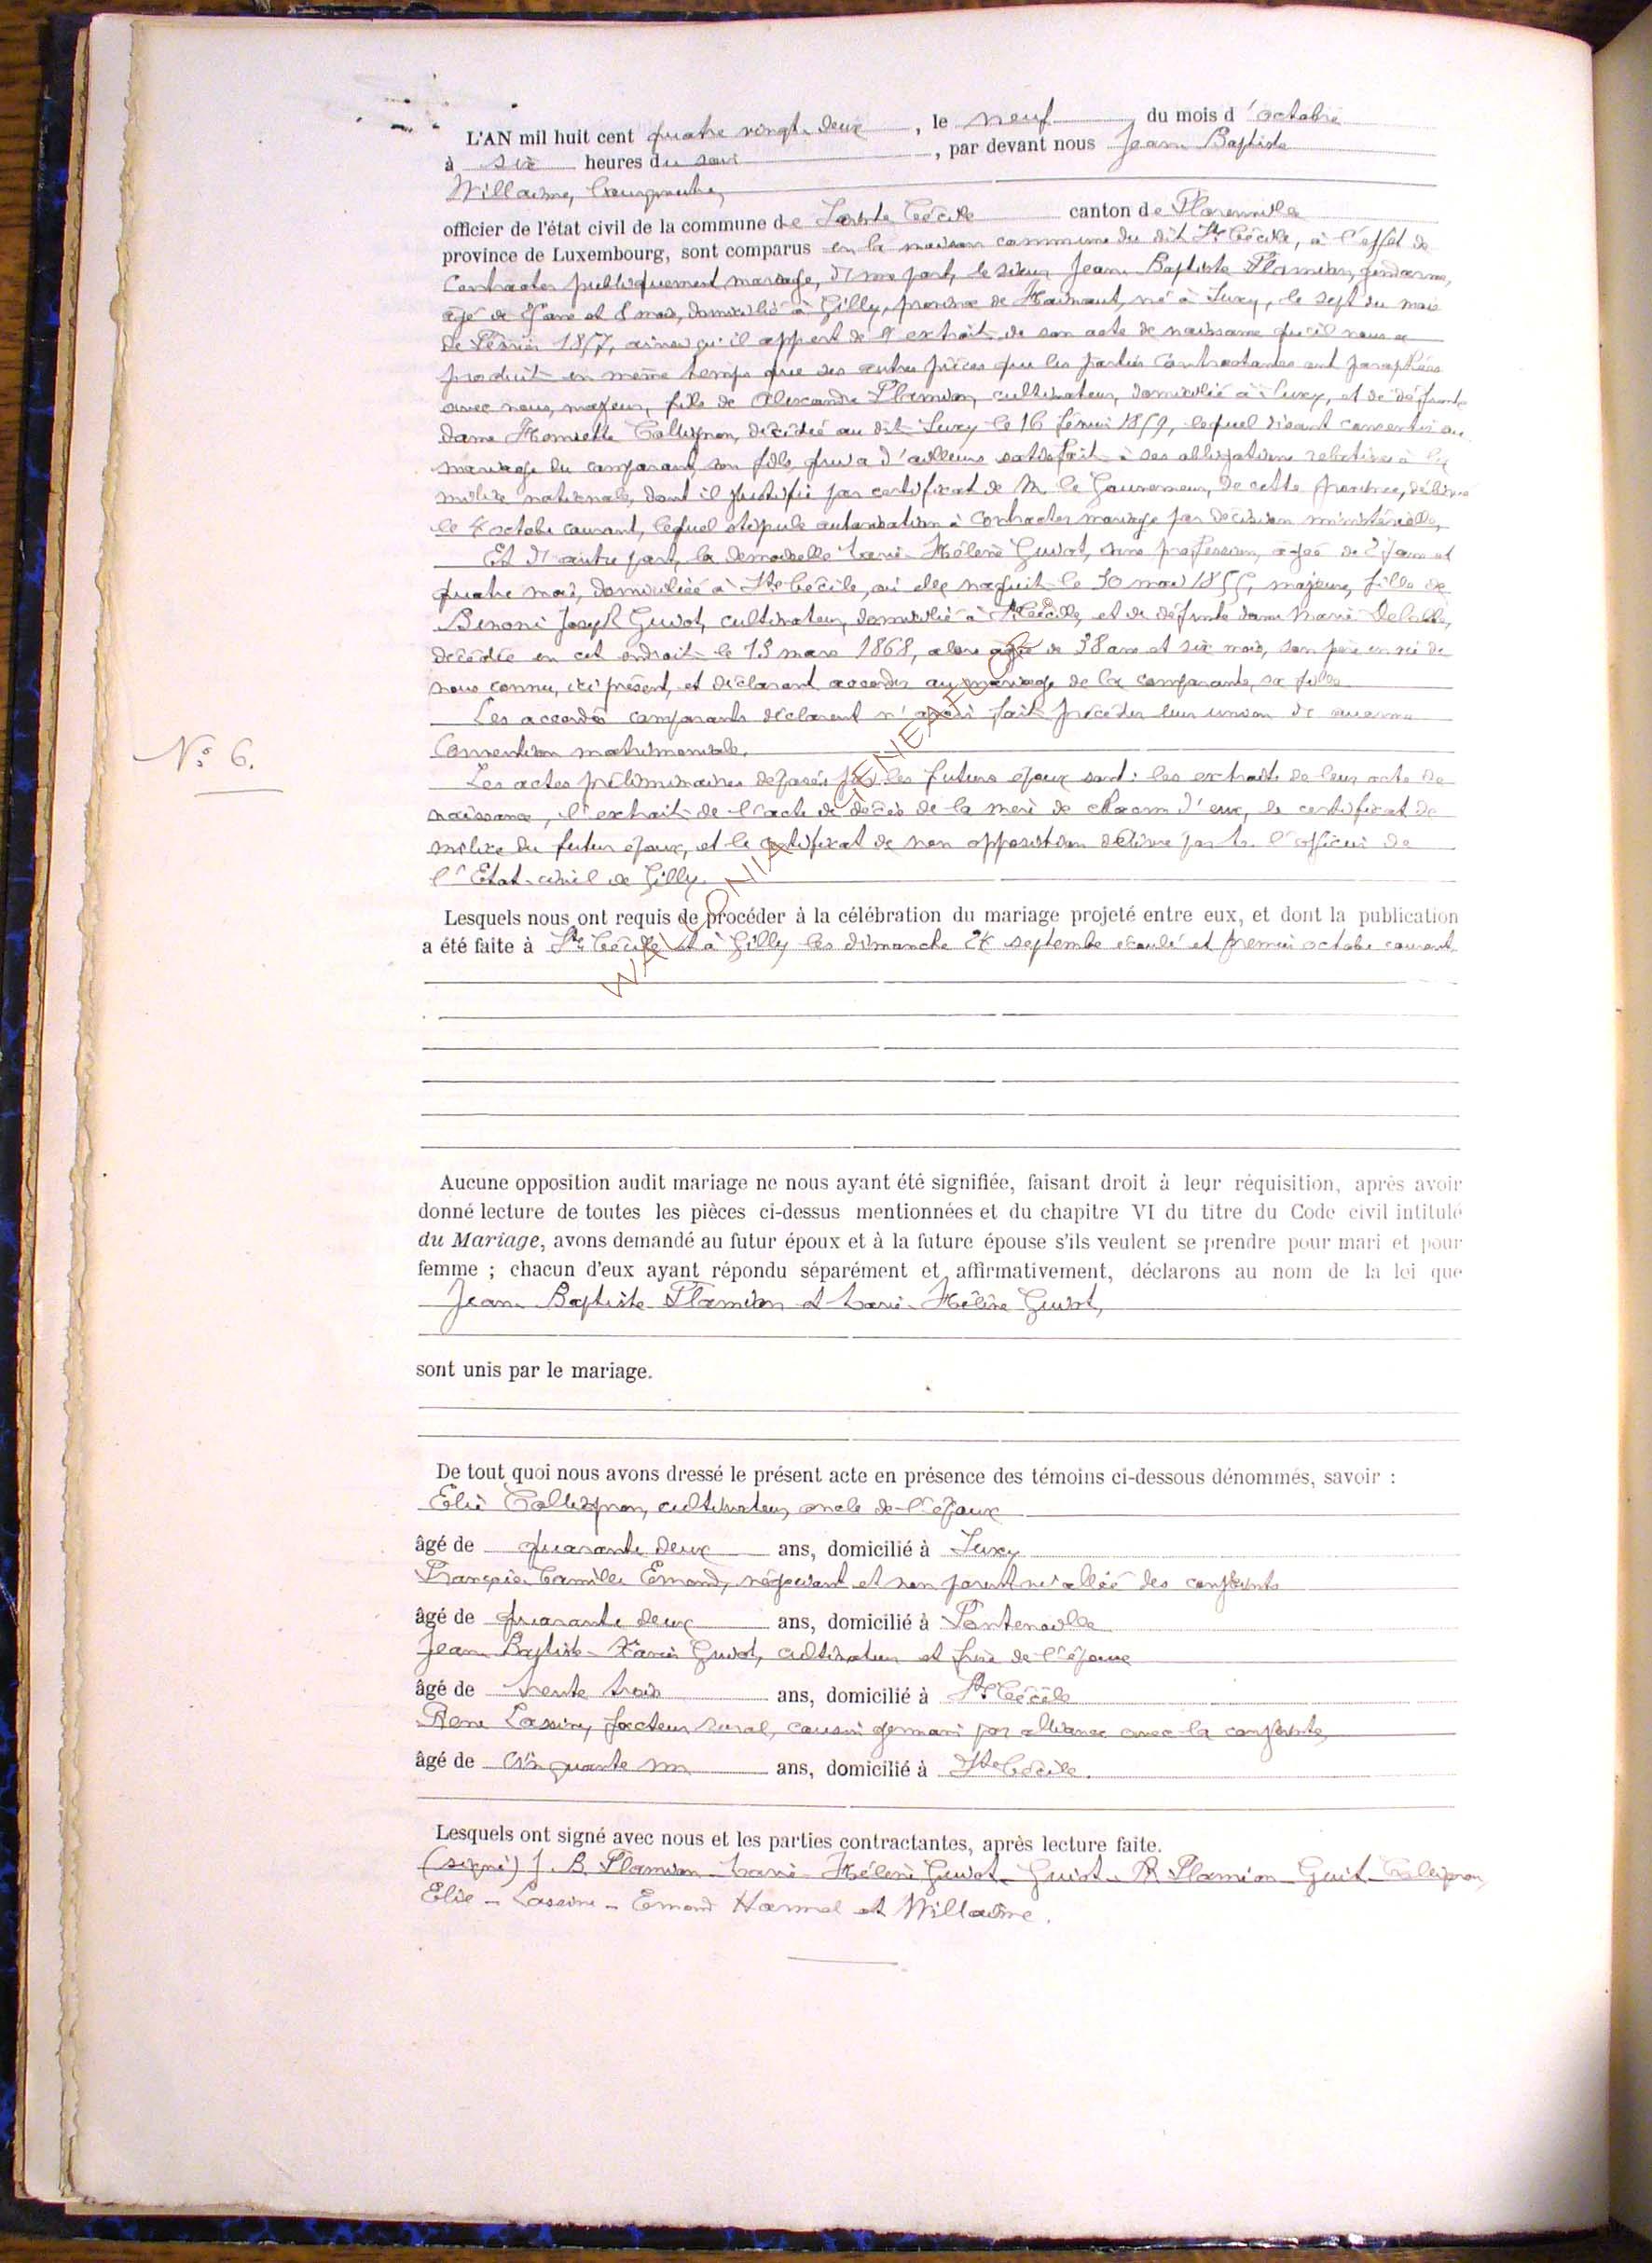 L'AN mil huit cent quatre vingt-deux, le neuf du mois d'octobre
à six heures du soir, par devant nous Jean Baptiste
Willaime, Bourgmestre,
officier de l'état civil de la commune de Sainte Cécile canton de Florenville
province de Luxembourg, sont comparus en la maison commune du dit Ste Cécile, à l'effet de
Contracter publiquement mariage, d'une part, le sieur Jean Baptiste Flamion, gendarme,
âgé de ans et 8 mois, domicilié à Gilly, province de Hainaut, né à Suxy, le sept du mois
de Février 1857, ainsi qu'il appert de l'extrait de son acte de naissance qu'il nous a
produit en même temps que des autres pièces que les parties contractantes ont paraphées
avec nous, majeur, fils de Alexandre Flamion, cultivateur, domicilié à Suxy, et de défunte
dame Henriette Collignon, décédée au dit Suxy le 16 Février 1859, lequel disant consentir au
mariage du comparant, son fils, qui a d'ailleurs satisfait à ses obligations relatives à la
milice nationale, dont il justifie par certificat de M. le Gouverneur, de cette province, délivré
le 4 octobre courant, lequel stipule autorisation à contracter mariage par décision ministérielle,
Et d'autre part, la demoiselle Marie-Hélène Guiot, sans profession, âgée de 27 ans et
quatre mois, domiciliée à Ste Cécile, où elle naquit le 30 mai 1855, majeure, fille de
Benoni Joseph Guiot, cultivateur, domicilié à Ste Cécile, et de défunte dame Marie
décédée en cet endroit le 13 mars 1868, alors âgée de 38 ans et six mois, son père de
nous connu, ici présent, et déclarant accorder au mariage de la comparante, sa fille
Les accordés comparants déclarent n'avoir fait précéder leur union de aucune
Convention matrimoniale.
N° 6.
Les actes préliminaires déposés par les futurs époux sont: les extraits de leur acte de
naissance, l'extrait de l'acte de décès de la mère de chacun d'eux, le certificat de
milice du futur époux, et le certificat de non opposition délivré par Mr l'officier de
l'Etat-civil de Gilly.
Lesquels nous ont requis de procéder à la célébration du mariage projeté entre eux, et dont la publication
a été faite à Ste Cécile et à Gilly les dimanche 24 septembre écoulé et premier octobre courant.
WALLONIA GENEAFL
Aucune opposition audit mariage ne nous ayant été signifiée, faisant droit à leur réquisition, après avoir
donné lecture de toutes les pièces ci-dessus mentionnées et du chapitre VI du titre du Code civil intitulé
du Mariage, avons demandé au futur époux et à la future épouse s'ils veulent se prendre pour mari et pour
femme ; chacun d'eux ayant répondu séparément et affirmativement, déclarons au nom de la loi que
Jean Baptiste Flamion et Marie-Hélène Guiot,
sont unis par le mariage.
De tout quoi nous avons dressé le présent acte en présence des témoins ci-dessous dénommés, savoir :
Elie Collignon, cultivateur, oncle de l'époux
âgé de quarante deux ans, domicilié à Suxy
François Camille Emond, négociant et non parent ni allié des conjoints
âgé de quarante deux ans, domicilié à Fontenoille
Jean Baptiste Xavier Guiot, cultivateur et frère de l'épouse
âgé de trente trois ans, domicilié à Ste Cécile
René Lassine, facteur rural, cousin germain par alliance avec la conjointe,
âgé de Cinquante un ans, domicilié à Ste Cécile.
Lesquels ont signé avec nous et les parties contractantes, après lecture faite.
(signé) J. B. Flamion Marie-Hélène Guiot - Guiot - A Flamion - Guiot - Collignon,
Elie - Lassine - Emond Harmel et Willaime.